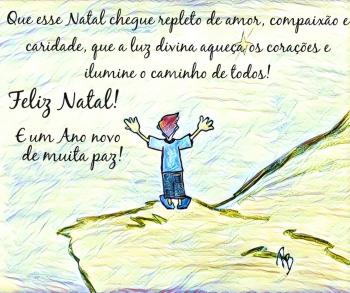 Que esse Natal chegue repleto de amor, compaixão e
caridade, que a luz divina aqueça os corações e
ilumine o caminho de todos!
Feliz Natal!
E um Ano novo
de muita paz!